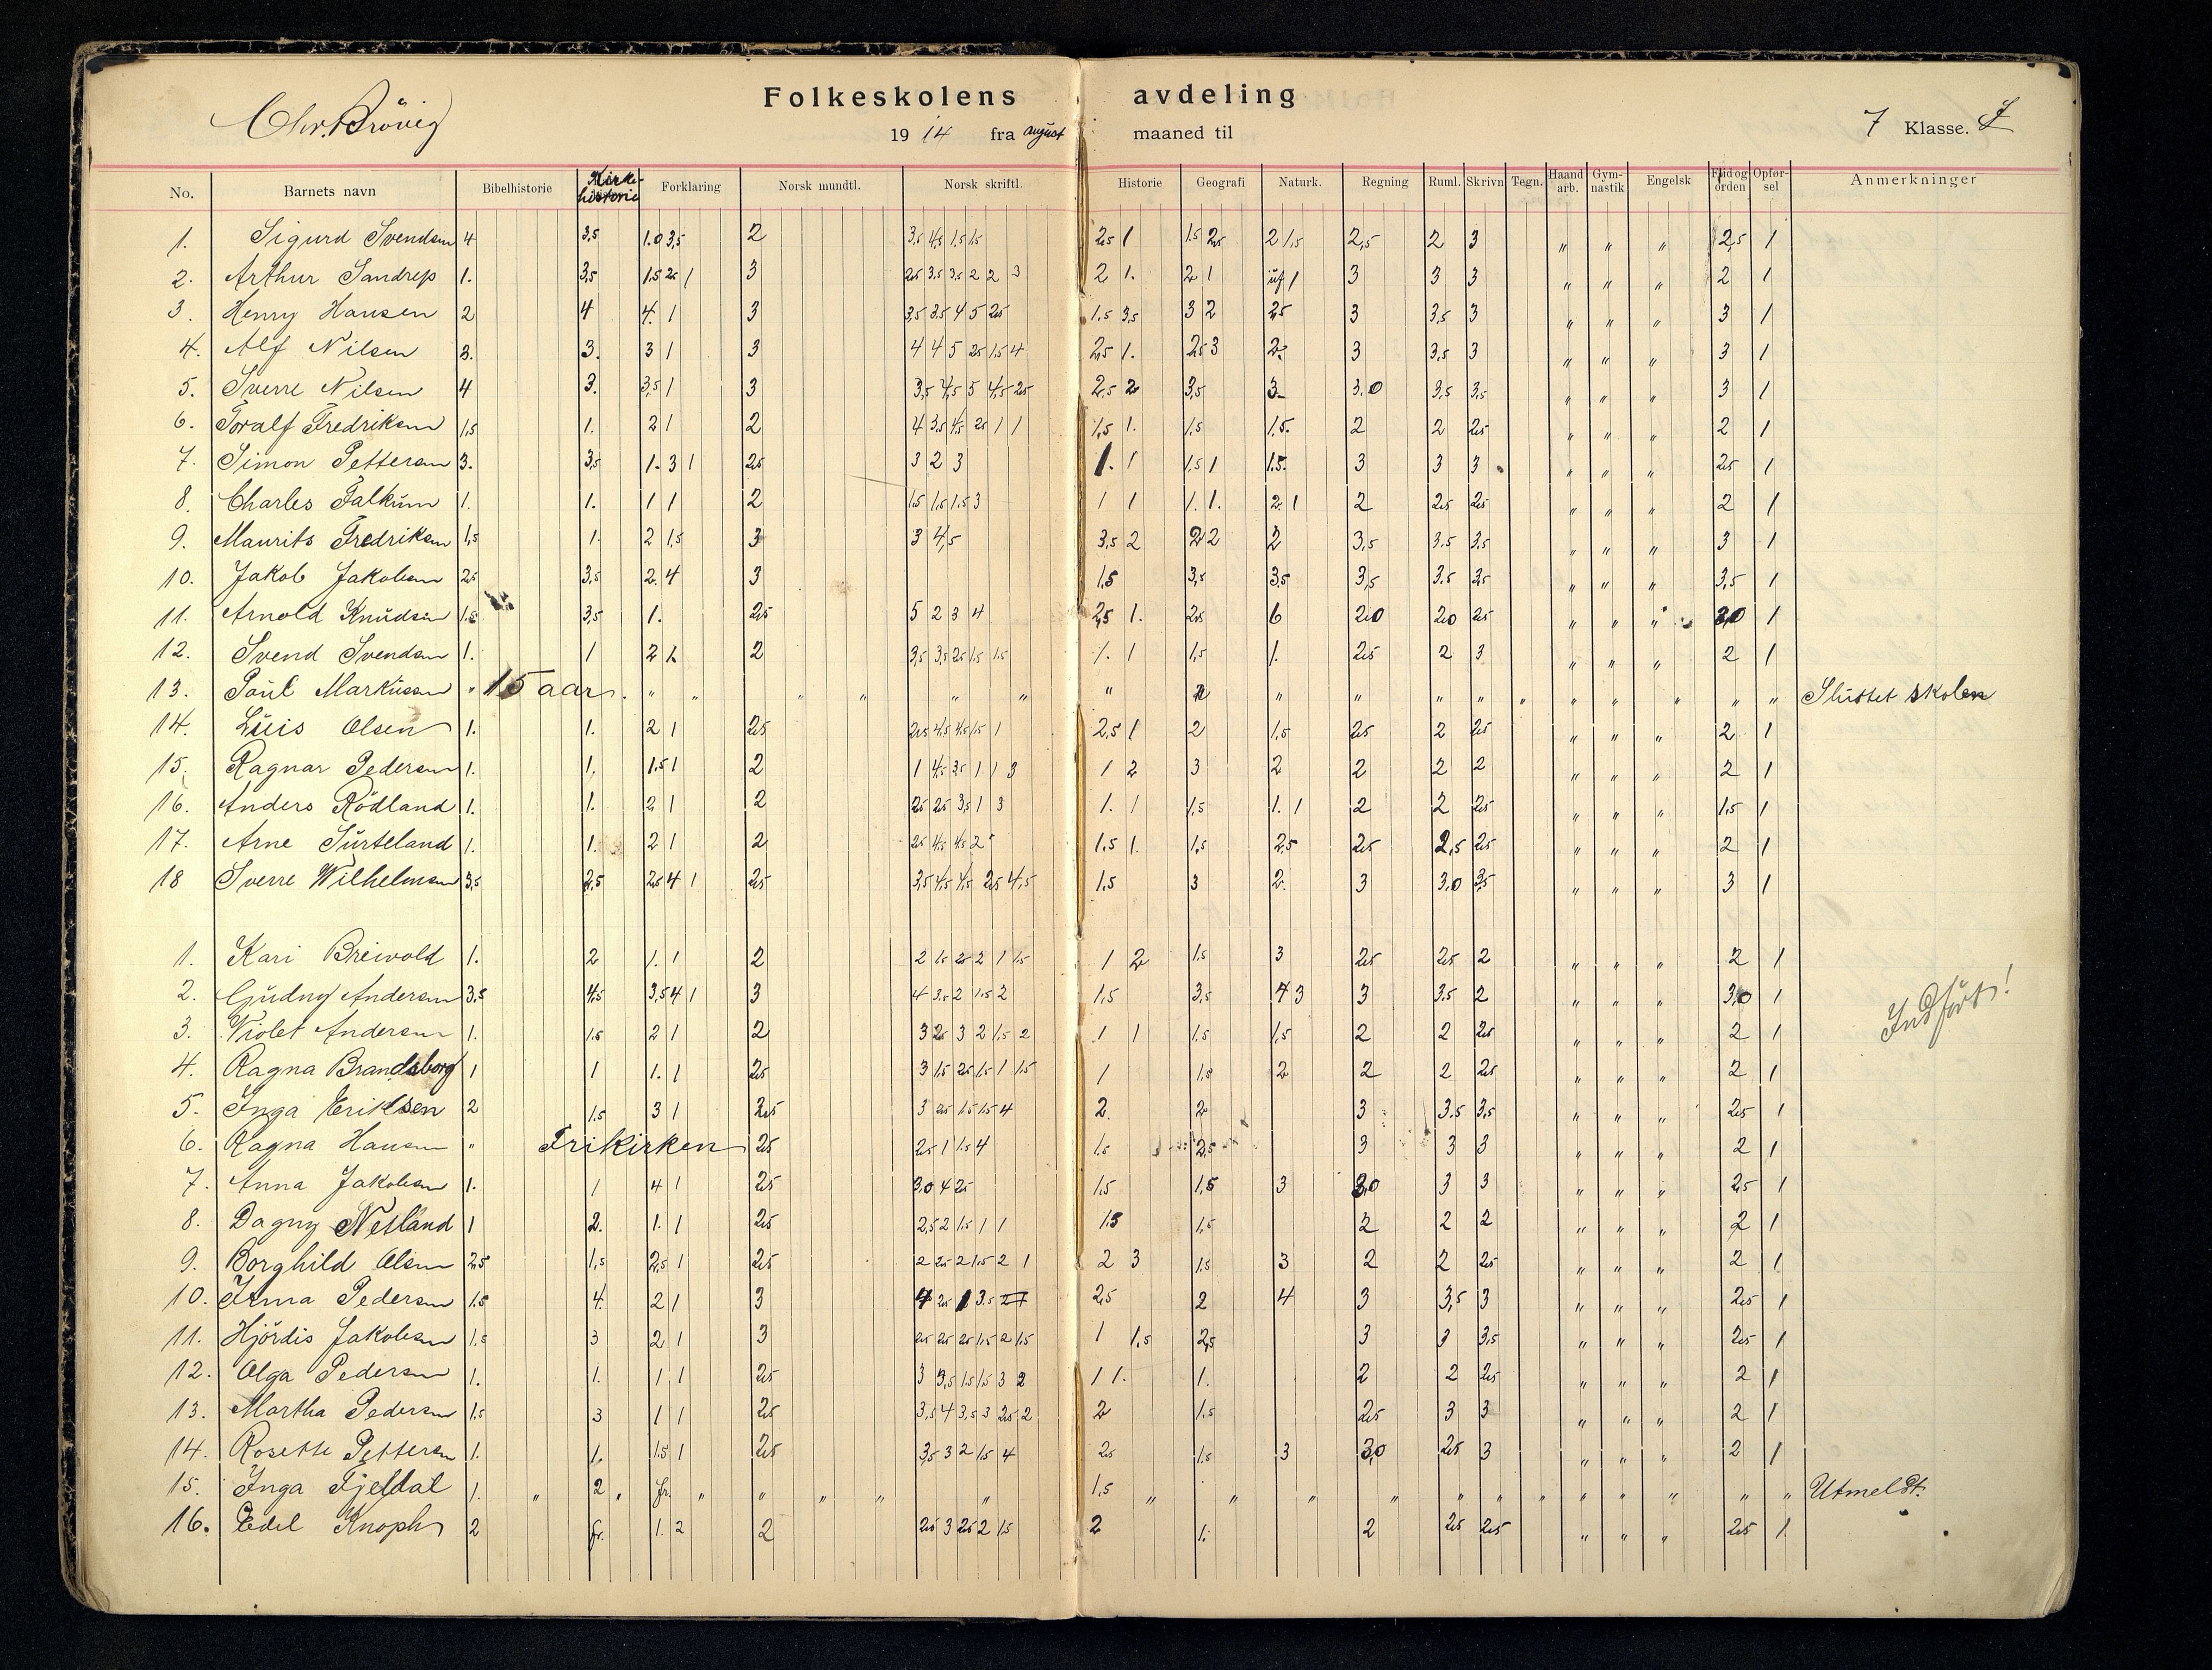 Chr. Brövig
Folkeskolens avdeling
1914 fra august maaned til
7 Klasse. I
No. Barnets navn Bibelhistorie Kirkehistorie Forklaring Norsk mundtl. Norsk skriftl. Historie Geografi Naturk. Regning Ruml. Skrivn Tegn. Haandarb. Gymnastik Engelsk Flid og orden Opførsel Anmerkninger
1. Sigurd Svendsen 4 3,5 1.0 3,5 2 3,5 4,5 1,5 1,5 2,5 1 1.5 2,5 2 1,5 2,5 2 3 " " " 2,5 1
2. Arthur Sandrep 1. 3,5 1,5 2,5 1 3 2,5 3,5 3,5 2 2 3 2 1. 2 1 uf 1 3 3 3 " " " 2 1
3. Henry Hansen 2 4 4. 1 3 3,5 3,5 4 5 2,5 1,5 3,5 3 2 2,5 3 3,5 3 " " " 3 1
4. Alf Nilsen 3. 3. 3 1 3 4 4 5 2,5 1,5 4 2,5 1. 2,5 3 2. 3 3,5 3 " " " 3 1
5. Sverre Nilsen 4 3. 3,5 1 3 3,5 4,5 5 4,5 2,5 2,5 2 3,5 3. 3.0 3,5 3,5 " " " 3 1
6. Toralf Fredriksen 1,5 1. 2 1 2 4 3,5 4,5 2,5 1 1 1,5 1. 1,5 1.5. 2 2 2,5 " " " 2 1
7. Simon Pettersen 3. 3,5 1. 3 1 2,5 3 2 3 1. 1 1,5 1 1.5. 3 3 3 " " " 2,5 1
8. Charles Falkum 1. 1. 1 1 2 1,5 1,5 1.5 3 1 1 1. 1. 2. 1 2 2,5 2,5 " " " 2 1
9. Maurits Fredriksen 1,5 1. 2 1,5 3 3 4,5 3,5 2 2 2 2 3,5 3.5 3,5 " " " 3 1
10. Jakob Jakobsen 2,5 3,5 2. 4 3 1,5 3,5 3,5 3,5 3.5 3,5 " " " 3,5 1
11. Arnold Knudsen 1.5 3,5 1. 2,5 5 2 3 4 2,5 1. 2,5 6 2,0 2,0 2,5 " " " 3,0 1
12. Svend Svendsen 1. 1 2 1. 2 3,5 3,5 2,5 1,5 1.5 1. 1 1,5 1. 2,5 2 3 " " " 2 1
13. Paul Markussen " 15 aar. " " " " " " " " " " " " " " " " " " Sluttet skolen
14. Luis Olsen 1. 1. 2 1 2,5 2,5 4,5 4,5 1,5 1 2,5 1 2 1,5 2,5 2 2,5 " " " 2 1
15. Ragnar Pedersen 1. 1. 1.5 1 2 1 4,5 3,5 1 1 3 1 2 3 2 2 2 2 " " " 2 1
16. Anders Rödland 1. 1. 2 1 2 2,5 2,5 3,5 1 3 1. 1 1,5 1. 1 2 2 2,5 " " " 1,5 1
17. Arne Surteland 1. 1. 2 1 2 2,5 4,5 4,5 2 1.5 1. 1,5 2,5 2,5 2,5 2,5 " " " 2 1
18 Sverre Wilhelmsen 3,5 2,5 2,5 4 1 2,5 3,5 4,5 1,5 2,5 4,5 1.5 3 2. 3 3,0 3,5 " " " 3 1
1. Kari Breivold 1. 2 1. 1 2 2 1,5 2,5 2 1 1,5 1 2 1,5 3 2,5 2,5 2 " " " 2 1
2. Gudny Andersen 3,5 4,5 3,5 4 1 3 4 3,5 2 1.5 2 1,5 3,5 4 3 3 3.5 2 " " " 3,0 1
Indført!
3. Violet Andersen 1. 1.5 2 1 2 3 2,5 3 2 1,5 2 1 1 1,5 1,5 2 2 2,5 " " " 2 1
4. Ragna Brandsborg 1 1 1. 1 2,5 3 1,5 2,5 1,5 1 1,5 1 1,5 2 2 2 2,5 " " " 2 1
5. Inga Eriksen 2 1,5 3 1 2,5 3 2,5 1,5 1,5 4 2. 2 3 3.5 3,5 " " " 2,5 1
6. Ragna Hansen " Frikirken 2,5 2,5 1 1,5 4 1.5 2,5 3 3 3 " " " 2 1
7. Anna Jakobsen 1. 1 4 1 2,5 3,0 4 2,5 1,5 1,5 3 3,0 3 3 " " " 2,5 1
8. Dagny Netland 1 2. 1. 1 2,5 2,5 2 1.5 1 1 1.5 1,5 2 2 2 " " " 2 1
9. Borghild Olsen 2,5 1,5 2,5 1 2,5 2 2,5 2 1.5 2 1 2 3 1.5 3 2 2 2,5 " " " 2 1
10. Irma Pedersen 1.5 4. 2 1 3 4 2,5 1 3.5 2,5 2 4 3 3,5 3 " " " 2,5 1
11. Hjördis Jakobsen 1,5 3 2 1 3 2,5 2,5 2,5 1,5 2 1,5 1 1,5 2,5 3 3 3,5 " " " 2,5 1
12. Olga Pedersen 1. 1. 1 1 2,5 3 3,5 1,5 1,5 3 2 1 1. 1. 2 2 2,5 " " " 2 1
13. Martha Pedersen 1,5 3 1 1 2,5 3,5 4 3,5 3 2,5 2 2 1.5 2,5 3 3 " " " 2 1
14. Rosette Pettersen 1. 1. 1.5 1 2,5 3,5 3 2 1,5 4 2,5 1.5 3 3,0 2,5 3 " " " 2 1
15. Inga Fjeldal 1. " 2 " fr. " " " " " 1,5 " " " " " " " " " " " " Utmeldt.
16. Edel Knoph 2 fr. 1. 2 2 2,5 3 2,5 2 1.5 2 1. 2 2,5 2,5 " " " 2,5 1